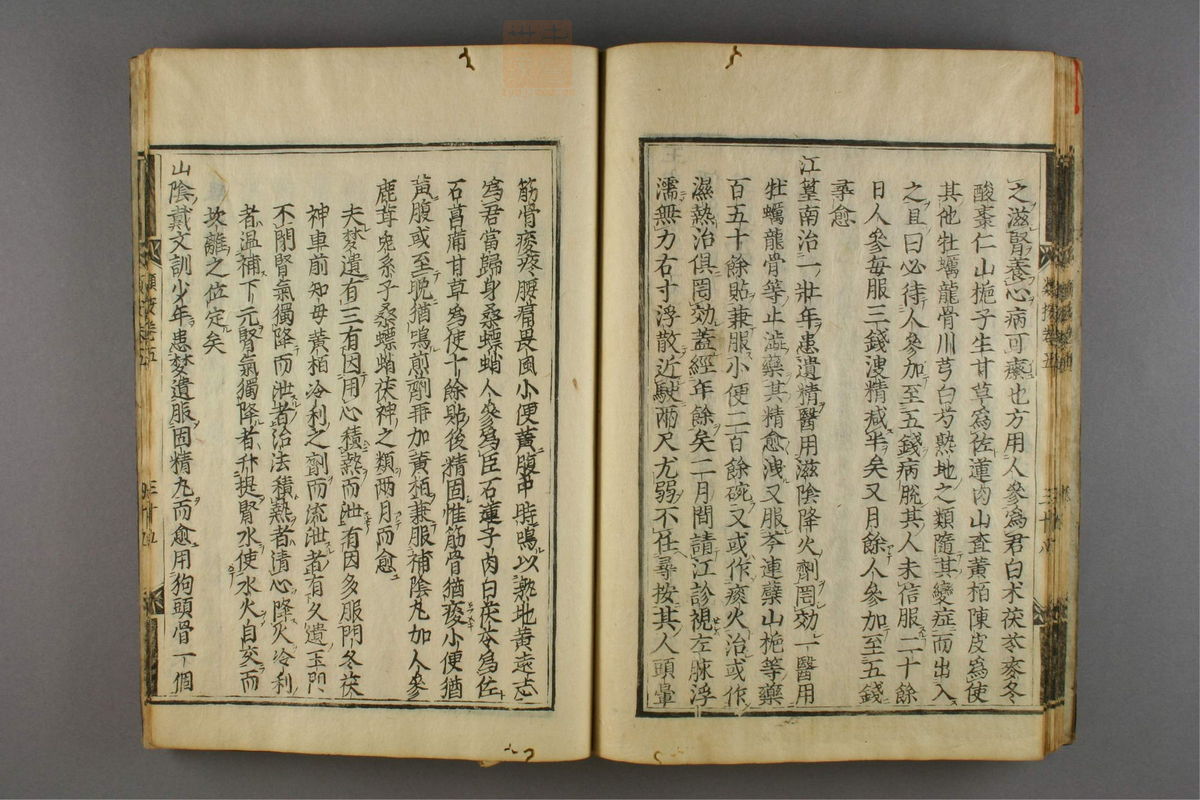 之滋腎養心病可瘳也方用人參爲君白术茯苓麥冬
酸棗仁山梔子生甘草爲佐蓮肉山查黄栢陳皮爲使
其他牡蠣龍骨川芎白芍熟地之類隨其變症而出入
之且曰必待人參加至五錢病脫其人未信服二十餘
日人參每服三錢洩精减半矣又月餘人參加至五錢
尋愈
江篁南治一壯年患遺精醫用滋陰降火劑罔効一醫用
牡蠣龍骨等止澁藥其精愈洩又服芩連蘗山梔等藥
百五十餘貼兼服小便二百餘碗又或作痰火治或作
濕熱治俱罔効蓋經年餘矣二月間請江診視左脉浮
濡無力右寸浮散近駛兩尺尤弱不任尋按其人頭暈
筋骨痠疼腰痛畏風小便黄腹中時鳴以熟地黄遠志
爲君當歸身桑螵蛸人參爲臣石蓮子肉白茯苓爲佐
石菖蒲甘草爲使十餘貼後精固惟筋骨猶痠小便猶
黄腹或至晩猶鳴煎劑再加黄栢兼服補陰丸加人參
鹿茸兎糸子桑螵蛸茯神之類兩月而愈
夫夢遺有三有因用心積熱而泄有因多服門冬茯
神車前知母黄栢冷利之劑而流泄者有久遺玉門
不閉腎氣獨降而泄者治法積熱者清心降火冷利
者温補下元腎氣獨降者升提腎水使水火自交而
坎離之位定矣
山陰戴文訓少年患夢遺服固精丸而愈用狗頭骨一個